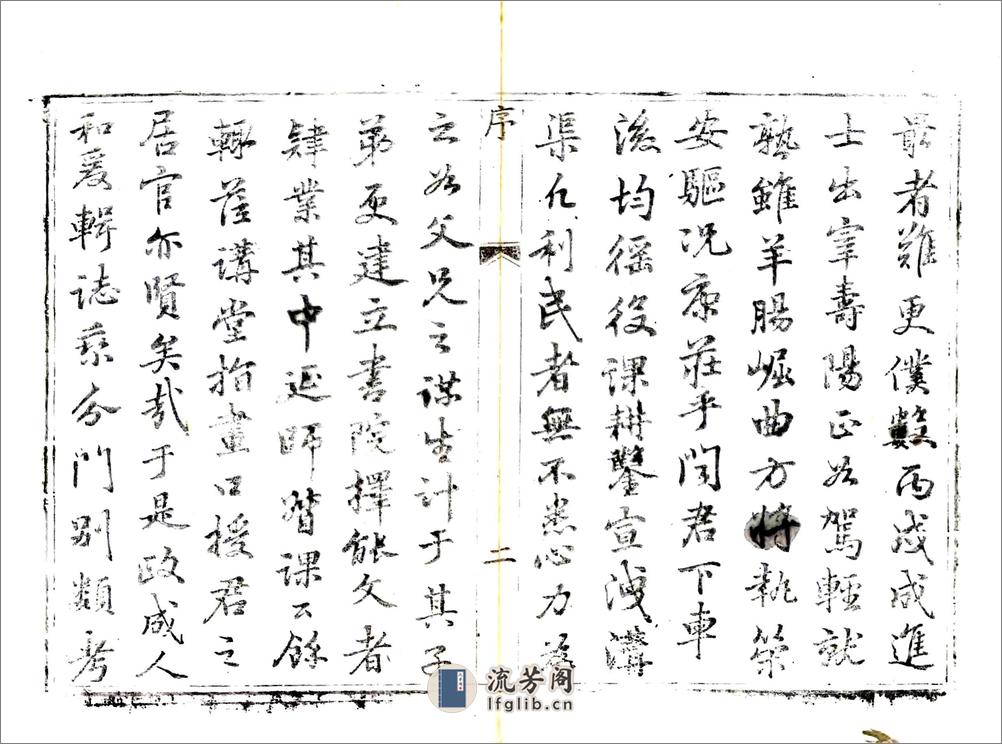 最者難更僕數丙戌成進
士出宰壽陽正如駕輕就
熟雖羊腸崛曲方將執策
安驅况康莊乎聞君下車
後均徭役課耕鑿宣洩溝
渠仁利民者無不悉心力為
序
二
之如父兄之謀生計于其子
弟更建立書院擇能文者
肄業其中延師督課公餘
輒蒞講堂指畫口授君之
居官亦賢矣哉于是政成人
和爰輯誌乘分門別類考
流芳阁
lfglib.cn